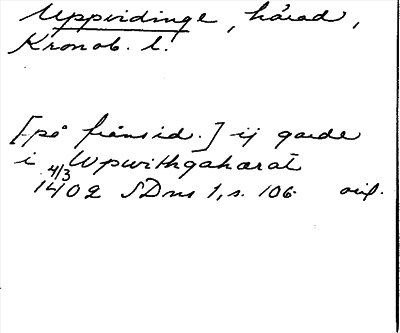 Uppvidinge, härad,
Kronob. l.
[på frånsid.] ij garde
i Wpwithgahæræt
4/3 1402 SDns 1, s. 106 orig.